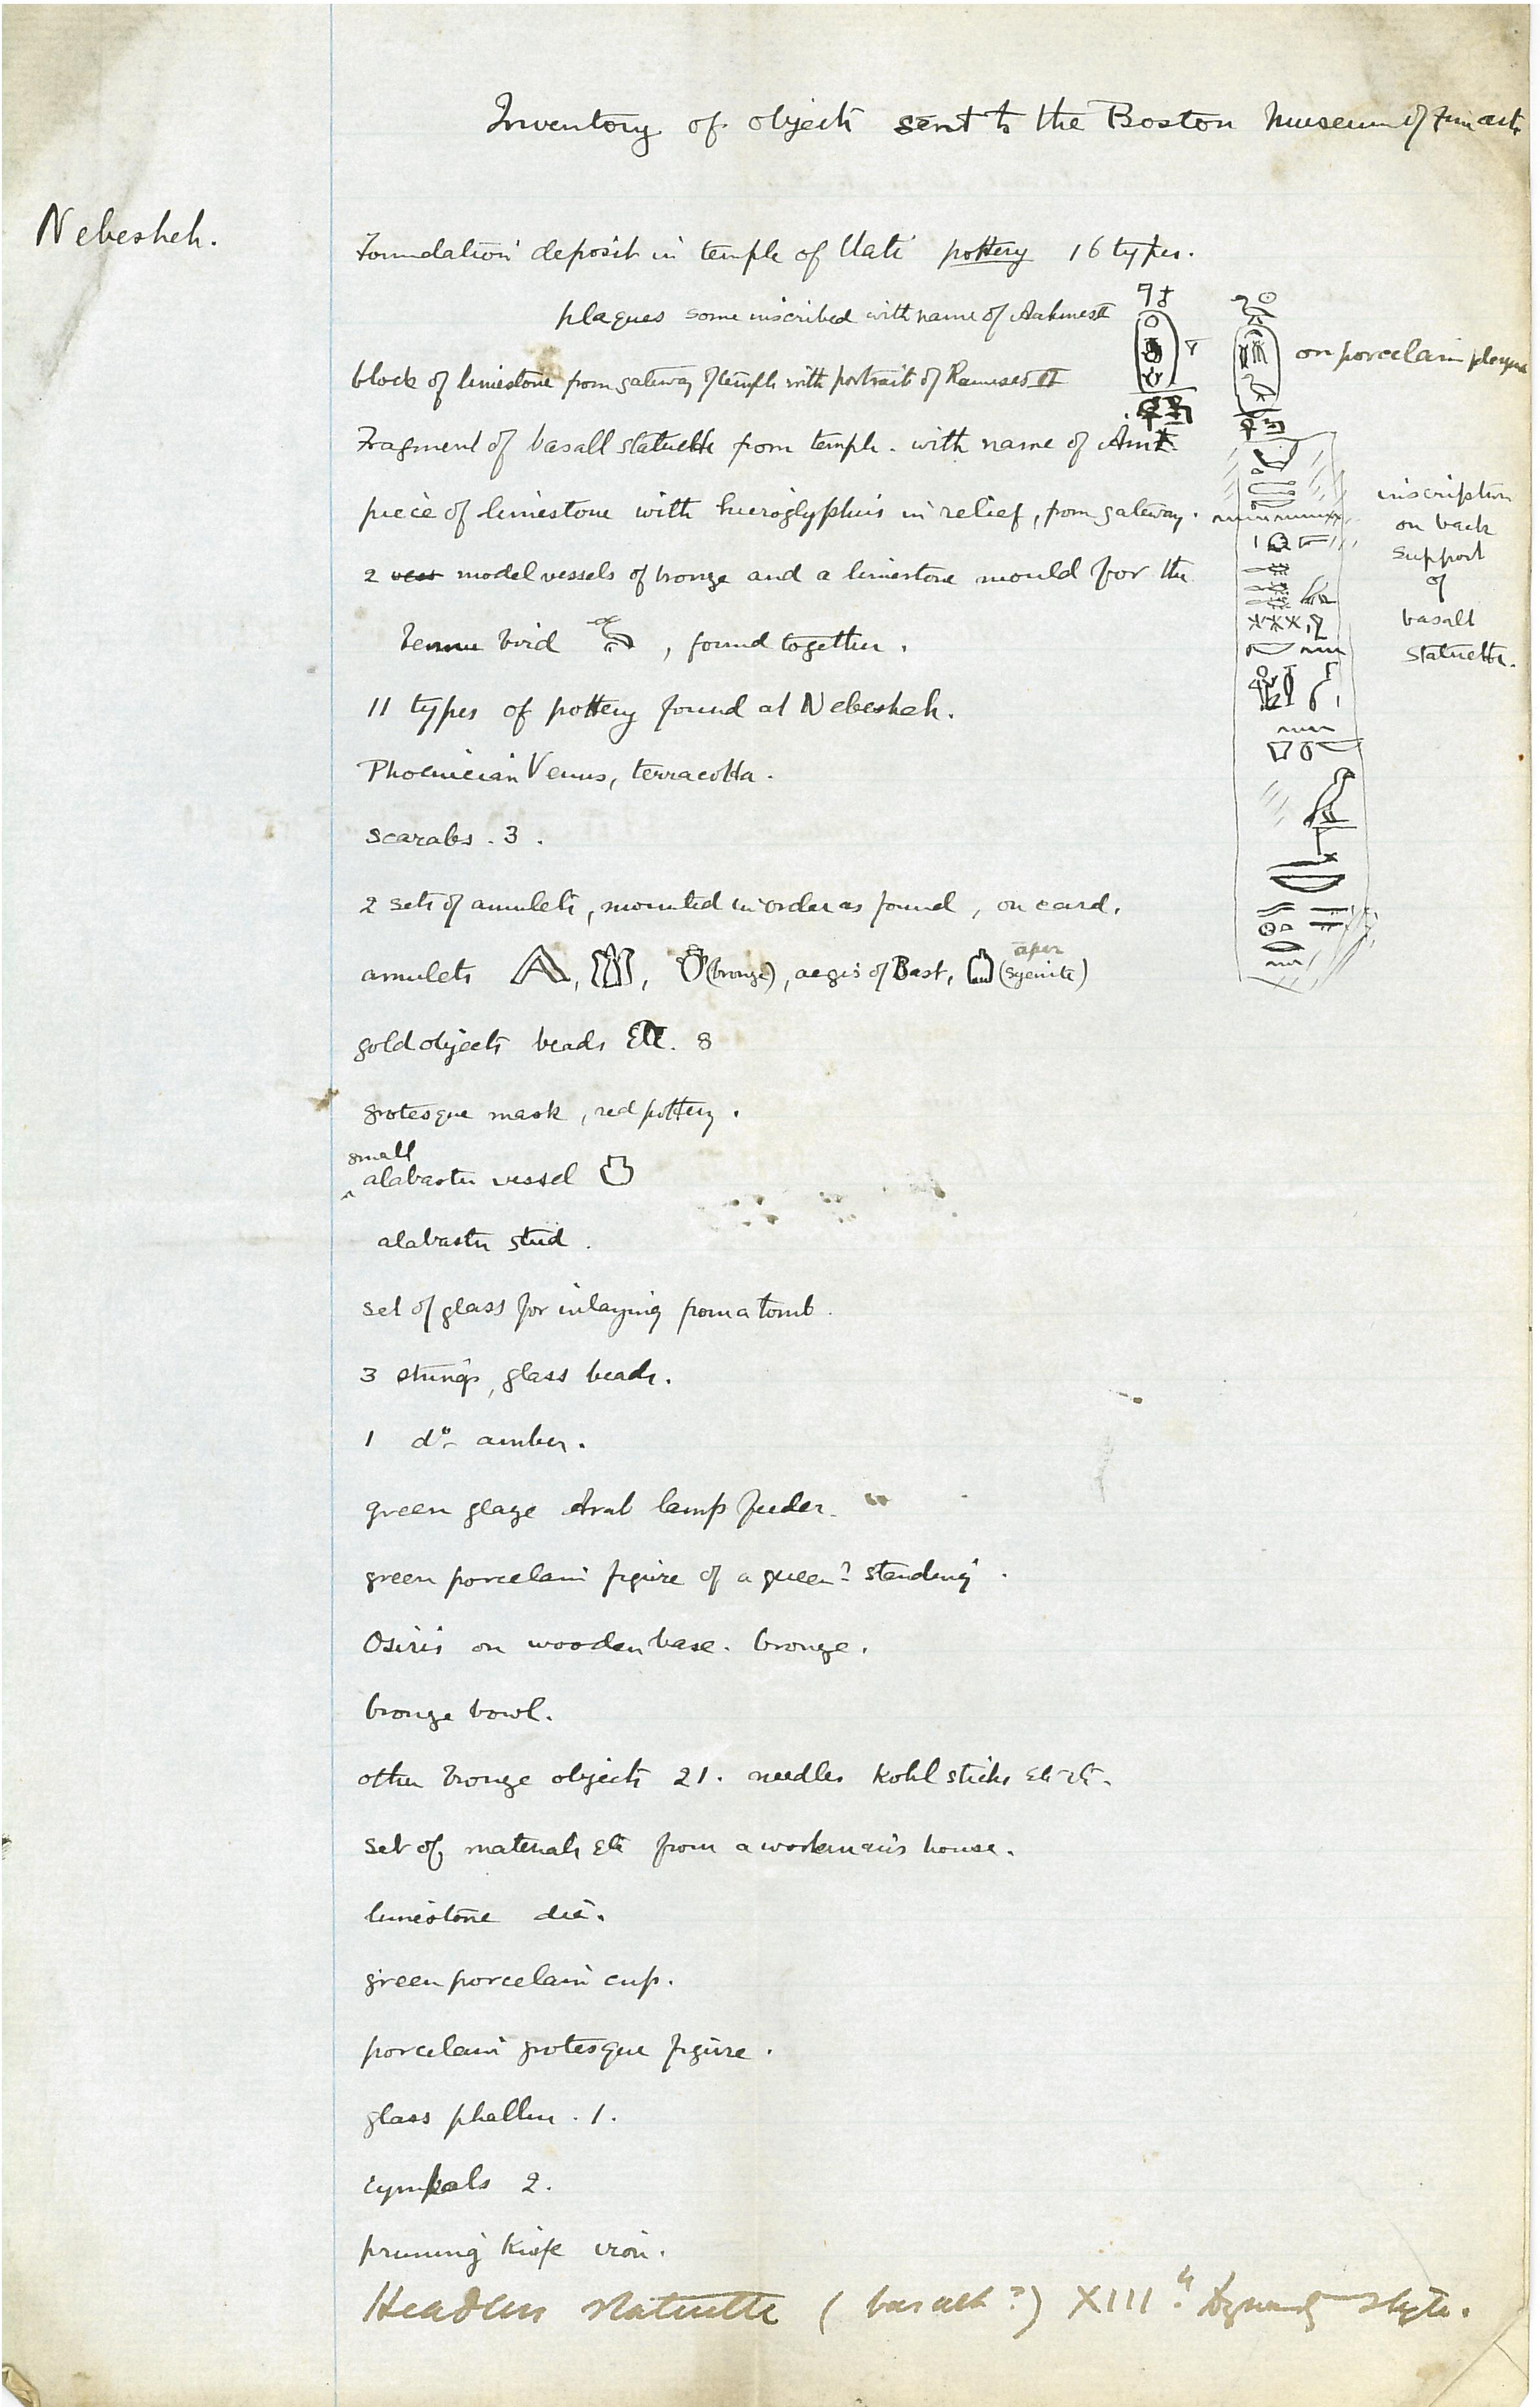 Inventory of objects sent to the Boston Museum of Fine arts
Nebesheh.
Foundation deposit in temple of Uati pottery 16 types.
plaques some inscribed with name of Aahmes II
on porcelain plaque
block of limestone from gateway of temple with portrait of Rameses II
Fragment of basalt statuette from temple. with name of
piece of limestone with hieroglyphics in relief, from gateway.
inscription
on back
support
of
basalt
statuette.
2 model vessels of bronze and a limestone mould for the
bennu bird , found together.
11 types of pottery found at Nebesheh.
Phoenician Venus, terracotta.
scarabs. 3.
2 sets of amulets, mounted in order as found, on card.
amulets , , (bronze), aegis of Bast, aper (syenite)
gold objects beads Etc. 8
grotesque mask, red pottery.
small alabaster vessel
alabaster stud.
set of glass for inlaying from a tomb.
3 strings, glass beads.
1 do. amber.
green glaze Arab lamp feeder.
green porcelain figure of a queen? standing.
Osiris on wooden base. bronze.
bronze bowl.
other bronze objects 21. needles Kohl sticks Etc etc.
set of materials Etc from a workman's house.
limestone die.
green porcelain cup.
porcelain grotesque figure.
glass phallus. 1.
cymbals 2.
pruning knife iron.
Headless statuette (basalt?) XIIIth Dynasty style.